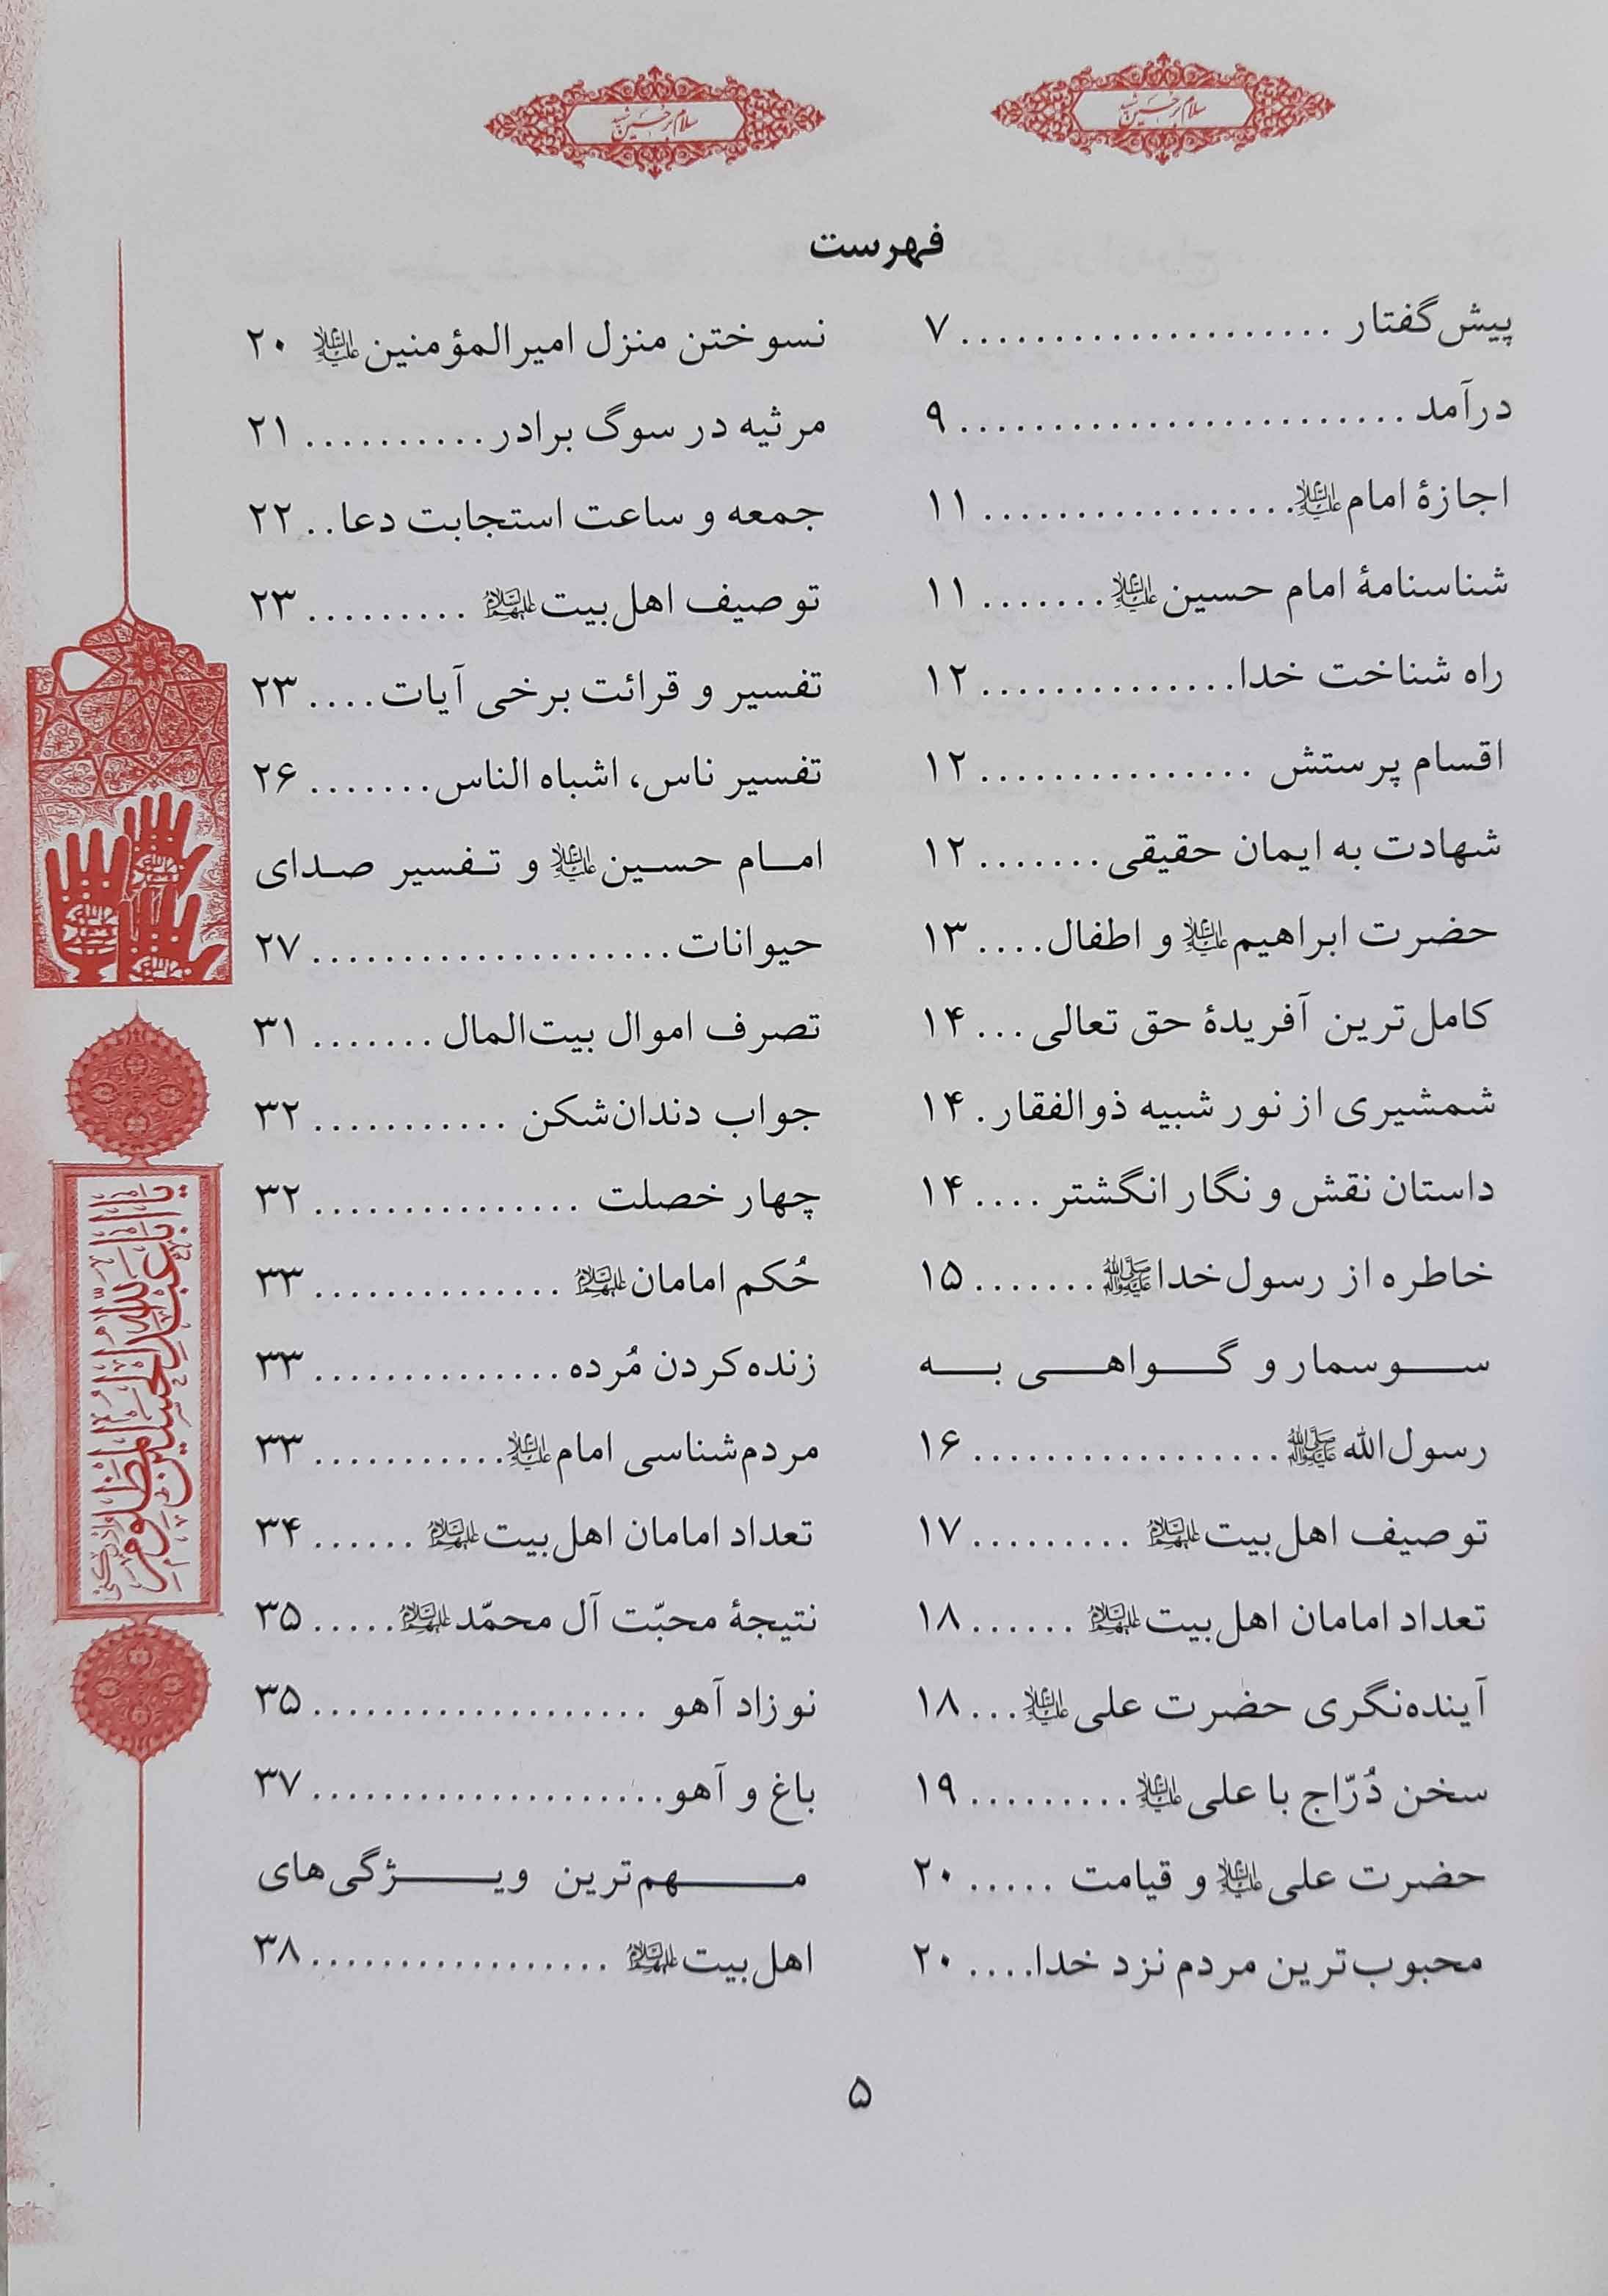 سلام بر حسین شهید
سلام بر حسین شهید
فهرست
پیش‌گفتار .................... ۷
درآمد ........................ ۹
اجازهٔ امام علیه‌السلام ................. ۱۱
شناسنامهٔ امام حسین علیه‌السلام ....... ۱۱
راه شناخت خدا .............. ۱۲
اقسام پرستش ............... ۱۲
شهادت به ایمان حقیقی ....... ۱۲
حضرت ابراهیم علیه‌السلام و اطفال .... ۱۳
کامل‌ترین آفریدهٔ حق تعالی ... ۱۴
شمشیری از نور شبیه ذوالفقار . ۱۴
داستان نقش و نگار انگشتر .... ۱۴
خاطره از رسول خدا ﷺ ....... ۱۵
سوسمار و گواهی به
رسول‌الله ﷺ ................. ۱۶
توصیف اهل‌بیت علیهم‌السلام ......... ۱۷
تعداد امامان اهل‌بیت علیهم‌السلام ...... ۱۸
آینده‌نگری حضرت علی علیه‌السلام ... ۱۸
سخن دُرّاج با علی علیه‌السلام ......... ۱۹
حضرت علی علیه‌السلام و قیامت ..... ۲۰
محبوب‌ترین مردم نزد خدا .... ۲۰
نسوختن منزل امیرالمؤمنین علیه‌السلام ۲۰
مرثیه در سوگ برادر .......... ۲۱
جمعه و ساعت استجابت دعا .. ۲۲
توصیف اهل‌بیت علیهم‌السلام ......... ۲۳
تفسیر و قرائت برخی آیات .... ۲۳
تفسیر ناس، اشباه الناس ....... ۲۶
امام حسین علیه‌السلام و تفسیر صدای
حیوانات .................... ۲۷
تصرف اموال بیت‌المال ....... ۳۱
جواب دندان‌شکن ........... ۳۲
چهار خصلت ............... ۳۲
حُکم امامان علیهم‌السلام .............. ۳۳
زنده کردن مُرده .............. ۳۳
مردم‌شناسی امام علیه‌السلام ........... ۳۳
تعداد امامان اهل‌بیت علیهم‌السلام ...... ۳۴
نتیجهٔ محبّت آل محمّد علیهم‌السلام ..... ۳۵
نوزاد آهو ................... ۳۵
باغ و آهو .................... ۳۷
مهم‌ترین ویژگی‌های
اهل‌بیت علیهم‌السلام ................. ۳۸
یا اباعبدالله الحسین المظلوم
۵